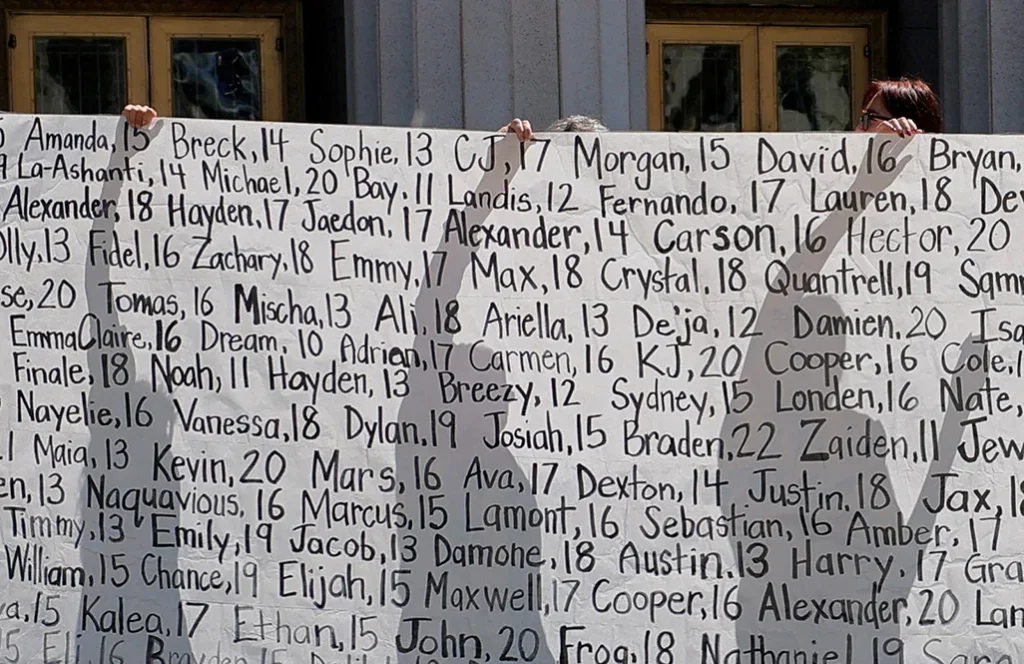 Amanda, 15 Breck, 14 Sophie, 13 CJ, 17 Morgan, 15 David, 16 Bryan,
La-Ashanti, 14 Michael, 20 Bay, 11 Landis, 12 Fernando, 17 Lauren, 18 De
Alexander, 18 Hayden, 17 Jaedon, 17 Alexander, 14 Carson, 16 Hector, 20
lly, 13 Fidel, 16 Zachary, 18 Emmy, 17 Max, 18 Crystal, 18 Quantrell, 19 Sam
se, 20 Tomas, 16 Mischa, 13 Ali, 18 Ariella, 13 De'ja, 12 Damien, 20 Isa
EmmaClaire, 16 Dream, 10 Adrien, 17 Carmen, 16 KJ, 20 Cooper, 16 Cole,
Finale, 18 Noah, 11 Hayden, 13 Breezy, 12 Sydney, 15 Londen, 16 Nate,
Nayelie, 16 Vanessa, 18 Dylan, 19 Josiah, 15 Braden, 22 Zaiden, 11 Jew
Maia, 13 Kevin, 20 Mars, 16 Ava, 17 Dexton, 14 Justin, 18 Jax,
en, 13 Naquavious, 16 Marcus, 15 Lamont, 16 Sebastian, 16 Amber, 17
Timmy, 13 Emily, 19 Jacob, 13 Damone, 18 Austin, 13 Harry, 17 Gra
William, 15 Chance, 19 Elijah, 15 Maxwell, 17 Cooper, 16 Alexander, 20 Lan
a, 15 Kalea, 17 Ethan, 15 John, 20 Frog, 18 Nathaniel, 19
Eli, 16